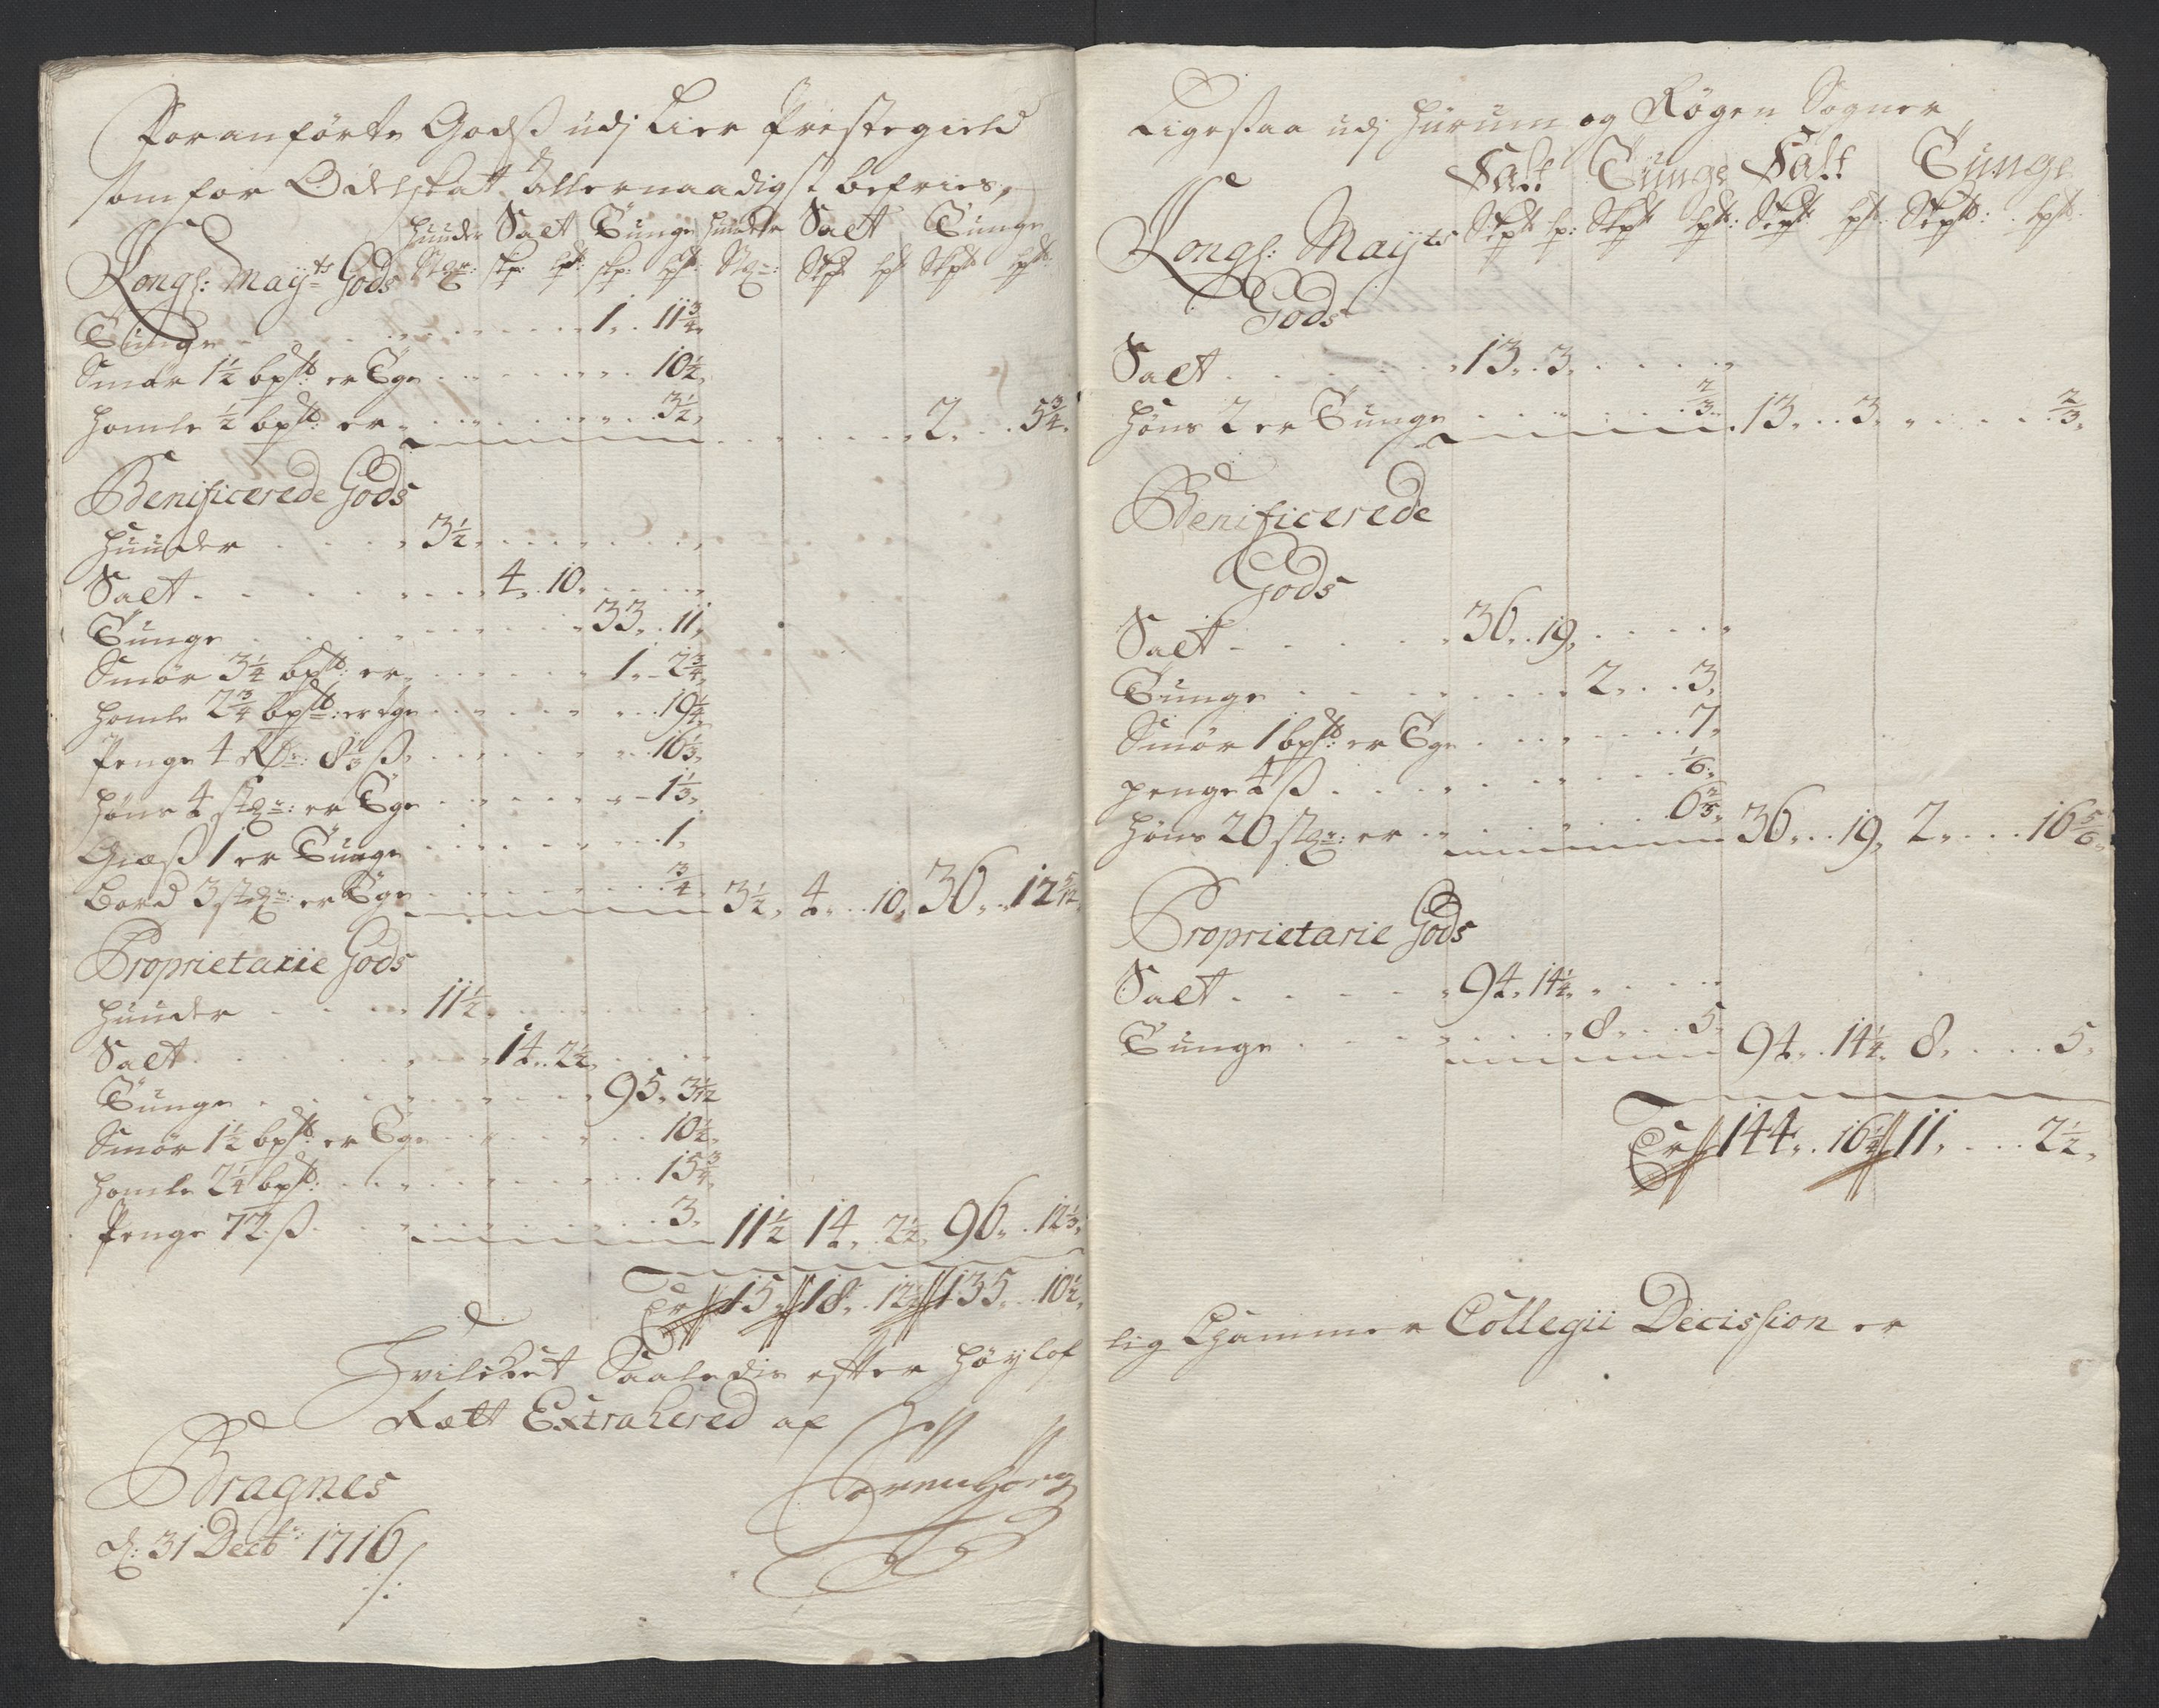 Foranførte Godß udj Lier Præstegield
som for Odelskat allernaadigst befries,
Huuder Salt Tunge Huuder Salt Tunge
Kongl: May:ts Gods Stxr: skp: lpt: skp: lpt: Stx: Skpt lpt Skpt lpt:
Tunge 1. 11 3/4
Smør 1 1/2 bpt: er Tge 10 1/2
Homle 1/2 bpt: er 3 1/2, 2. 5 3/4
Benificerede Gods
Huuder 3 1/2
Salt 4. 10
Tunge 33. 11
Smør 3 1/4 bpt: er 1. 2 3/4
Homle 2 3/4 bpt: er tge 19 1/4
Penge 4 Rdr: 8 ß 16 1/3
Høns 4 stxr: er Tge 1 1/3
Giæß 1 er Tunge 1
Bord 3 stxr: er Tge 3/4 3 1/2 4. 10. 36. 12 5/12
Proprietarie Gods
Huuder 11 1/2
Salt 14. 2 1/2
Tunge 95. 3 1/12
Smør 1 1/2 bpt: er Tge 10 1/2
Homle 2 1/4 bpt: 15 3/4
Penge 72 ß 3. 11 1/2 14. 2 1/2 96. 12 1/3
Er 15 18. 12 1/2 135. 10 1/2
Hvilcket Saaledis efter Høylof
Rætt Extrahered af
Bragnes
d: 31 Decb: 1716

Ligesaa udj Hurum og Røgen Sogner
Salt Tunge Salt Tunge
Kongl: May:ts Skpt lp: Skpt lpt: Skpt lpt: Skpt: lpt:
Gods
Salt 13. 3
Høns 2 er Tunge 2/3 13. 3. 2/3
Benificerede
Gods
Salt 36. 19
Tunge 2. 3
Smør 1 bpt: er Tge 7
penge 4 ß 1/6
Høns 20 stxr: er 6 2/3 36. 19. 2. 16 5/6
Proprietarie Gods
Salt 94. 14 1/4
Tunge 8. 5. 94. 14 1/4 8. 5
Er 144. 16 1/4 11. 2 1/2
lig Cammer Collegii Decission er